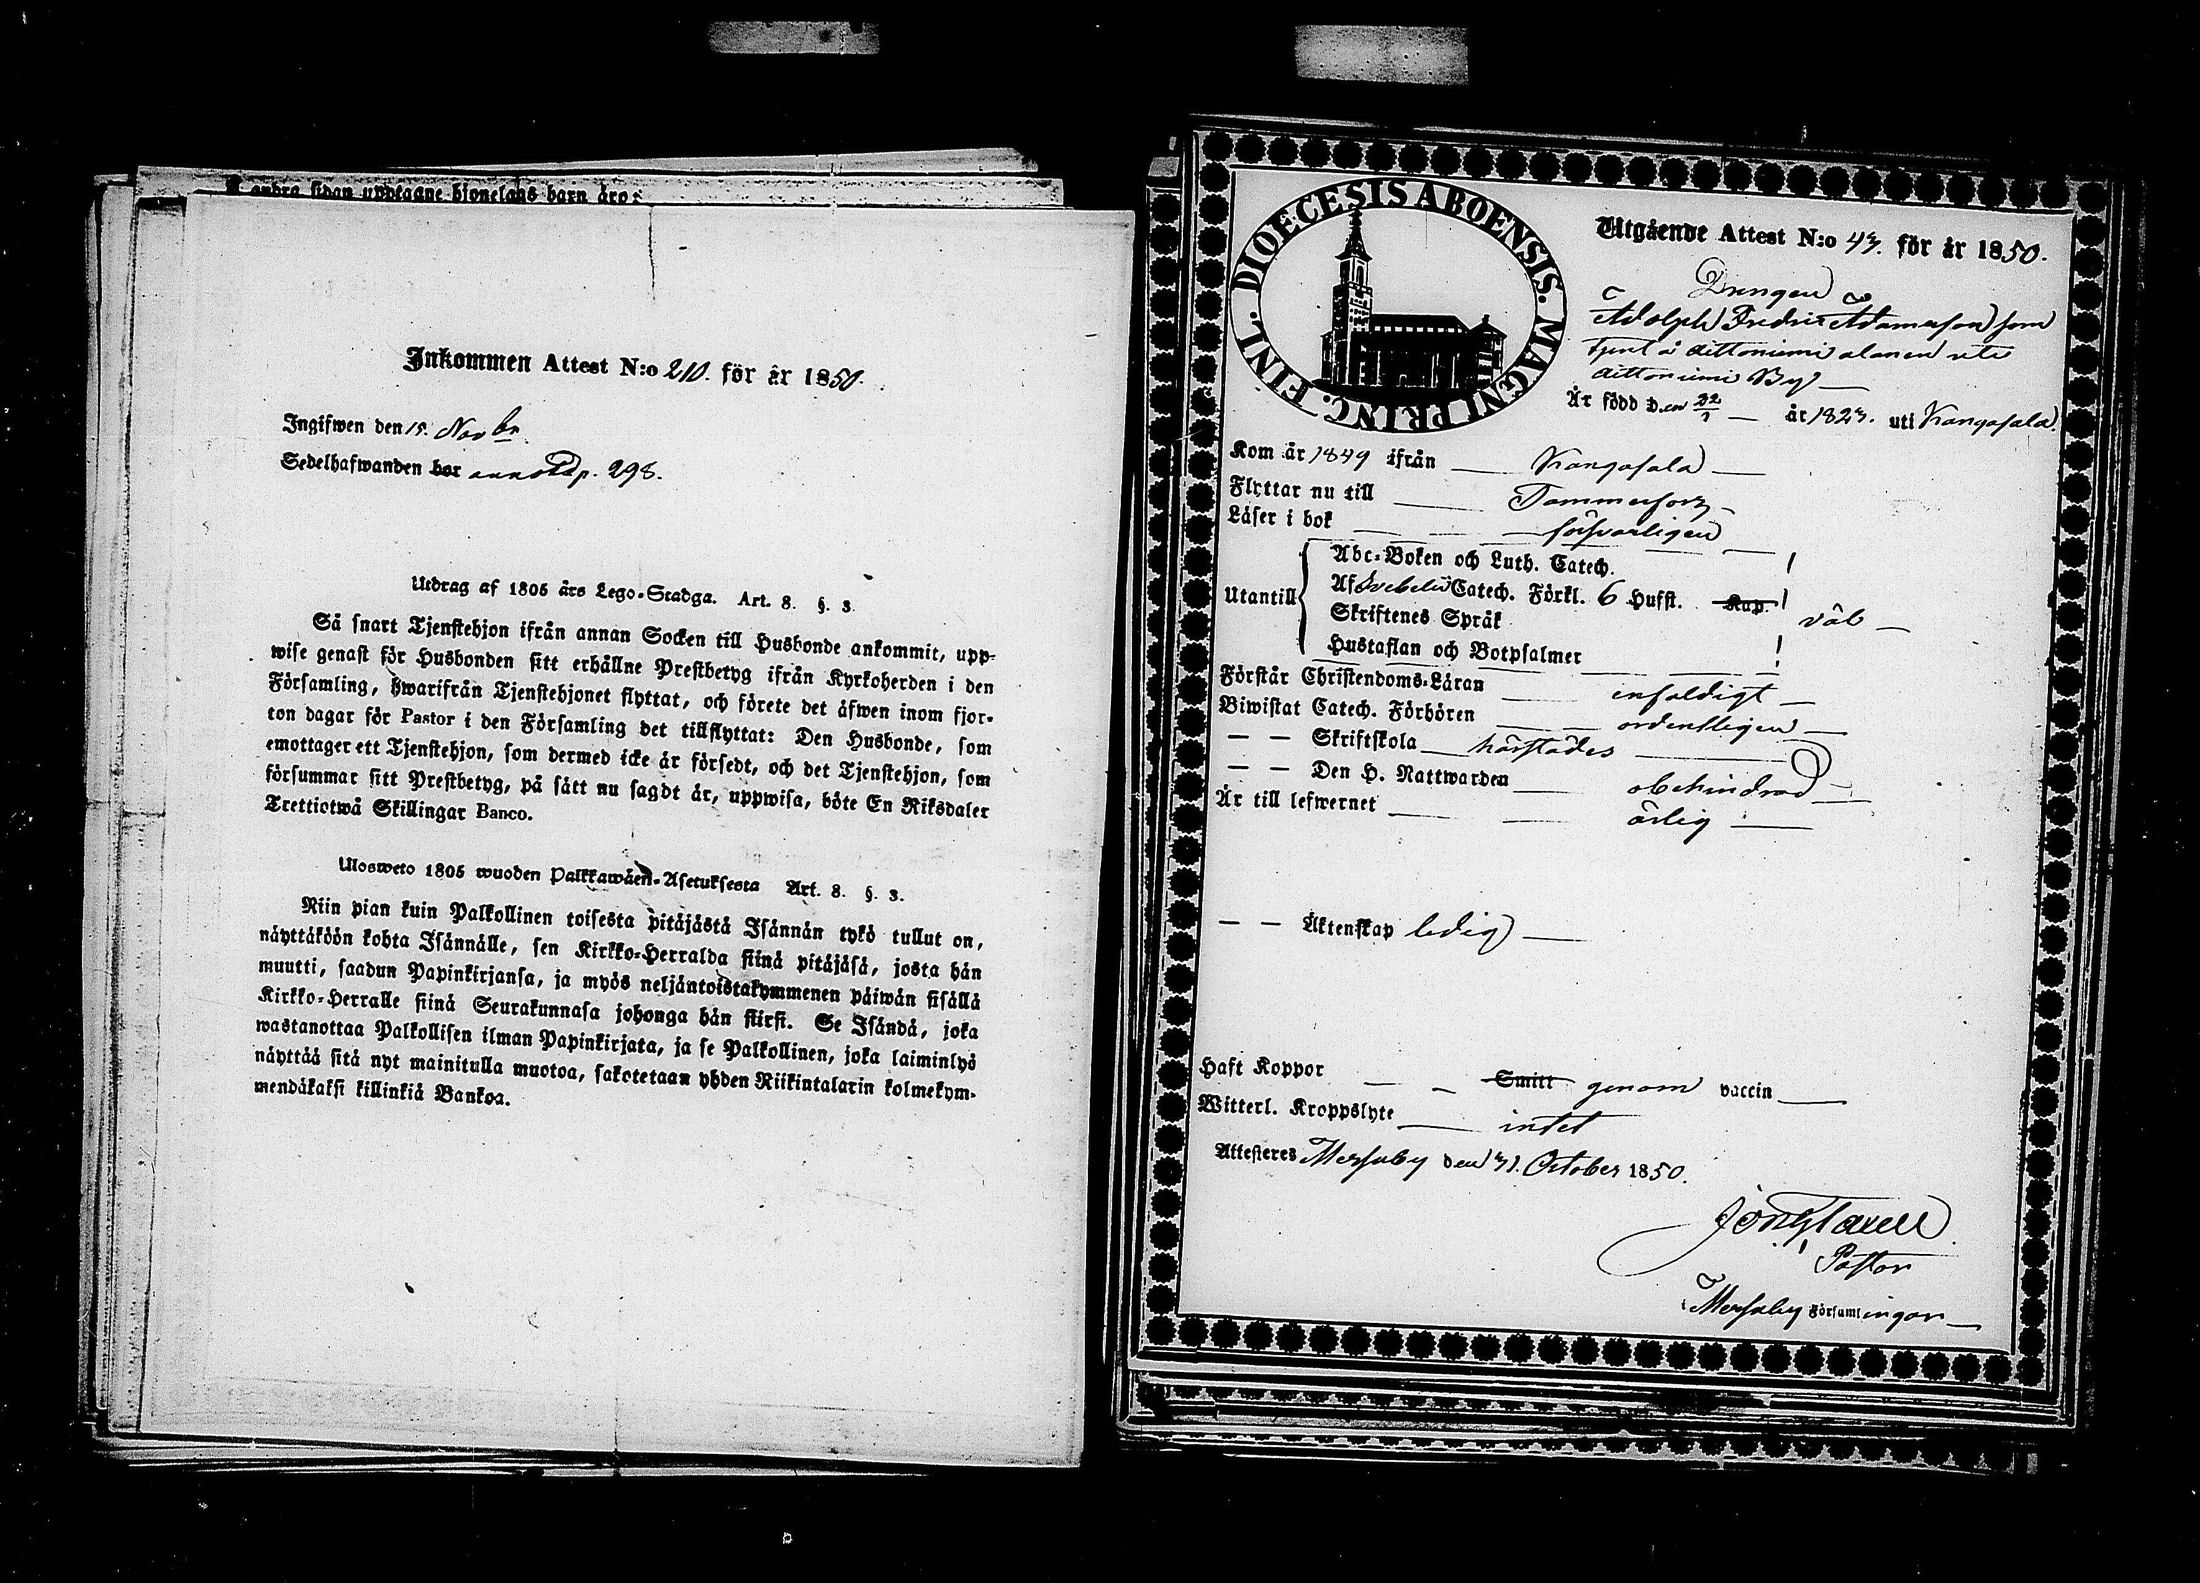 å andra sidan upptagne hjonelags barn äro:
Inkommen Attest N:o 210. för år 1850.
Ingifwen den 15. Novbr
Sedelhafwanden bor annot. p. 298.
Utdrag af 1805 års Lego-Stadga. Art. 8. §. 3.
Så snart Tjenstehjon ifrån annan Socken till Husbonde ankommit, upp-
wise genast för Husbonden sitt erhållne Prestbetyg ifrån Kyrkoherden i den
Församling, hwarifrån Tjenstehjonet flyttat, och förete det äfwen inom fjor-
ton dagar för Pastor i den Församling det tillflyttat: Den Husbonde, som
emottager ett Tjenstehjon, som dermed icke är försedt, och det Tjenstehjon, som
försummar sitt Prestbetyg, på sätt nu sagdt är, uppwisa, böte En Riksdaler
Trettiotwå Skillingar Banco.
Ulosweto 1805 wuoden Palkkawäen-Asetuksesta Art. 8. §. 3.
Niin pian kuin Palkollinen toisesta pitäjästä Isännän tykö tullut on,
näyttäköön kohta Isännälle, sen Kirkko-Herralda siinä pitäjäsä, josta hän
muutti, saadun Papinkirjansa, ja myös neljäntoistakymmenen päiwän sisällä
Kirkko-Herralle siinä Seurakunnasa johonga hän siirsi. Se Isändä, joka
wastanottaa Palkollisen ilman Papinkirjata, ja se Palkollinen, joka laiminlyö
näyttää sitä nyt mainitulla muotoa, sakotetaan yhden Riikintalarin kolmekym-
mendäkaksi killinkiä Bankoa.
DIOECESIS ABOENSIS. MAGNI PRINC. FINL.
Utgående Attest N:o 43. för år 1850.
Drengen
Adolph Fredric Adamsson som
tjent å Aittoniemi alanen uti
Aittoniemi By
Är född den 22/1 år 1823. uti Kangasala.
Kom år 1849 ifrån Kangasala
Flyttar nu till Tammerfors
Läser i bok försvarligen
Utantill
Abc-Boken och Luth. Catech.
Af Svebelii Catech. Förkl. 6 Hufst. Kap.
Skriftenes Språk
Hustaflan och Botpsalmer
väl
Förstår Christendoms-Läran enfaldigt
Biwistat Catech. Förhören ordentligen
— — Skriftskola härstädes
— — Den H. Nattwarden obehindrad
Är till lefwernet ärlig
— — Äktenskap ledig
Haft Koppor Smitt genom vaccin
Witterl. Kroppslyte intet
Attesteres Messuby den 31. October 1850.
Pastor
i Messuby Församlingar